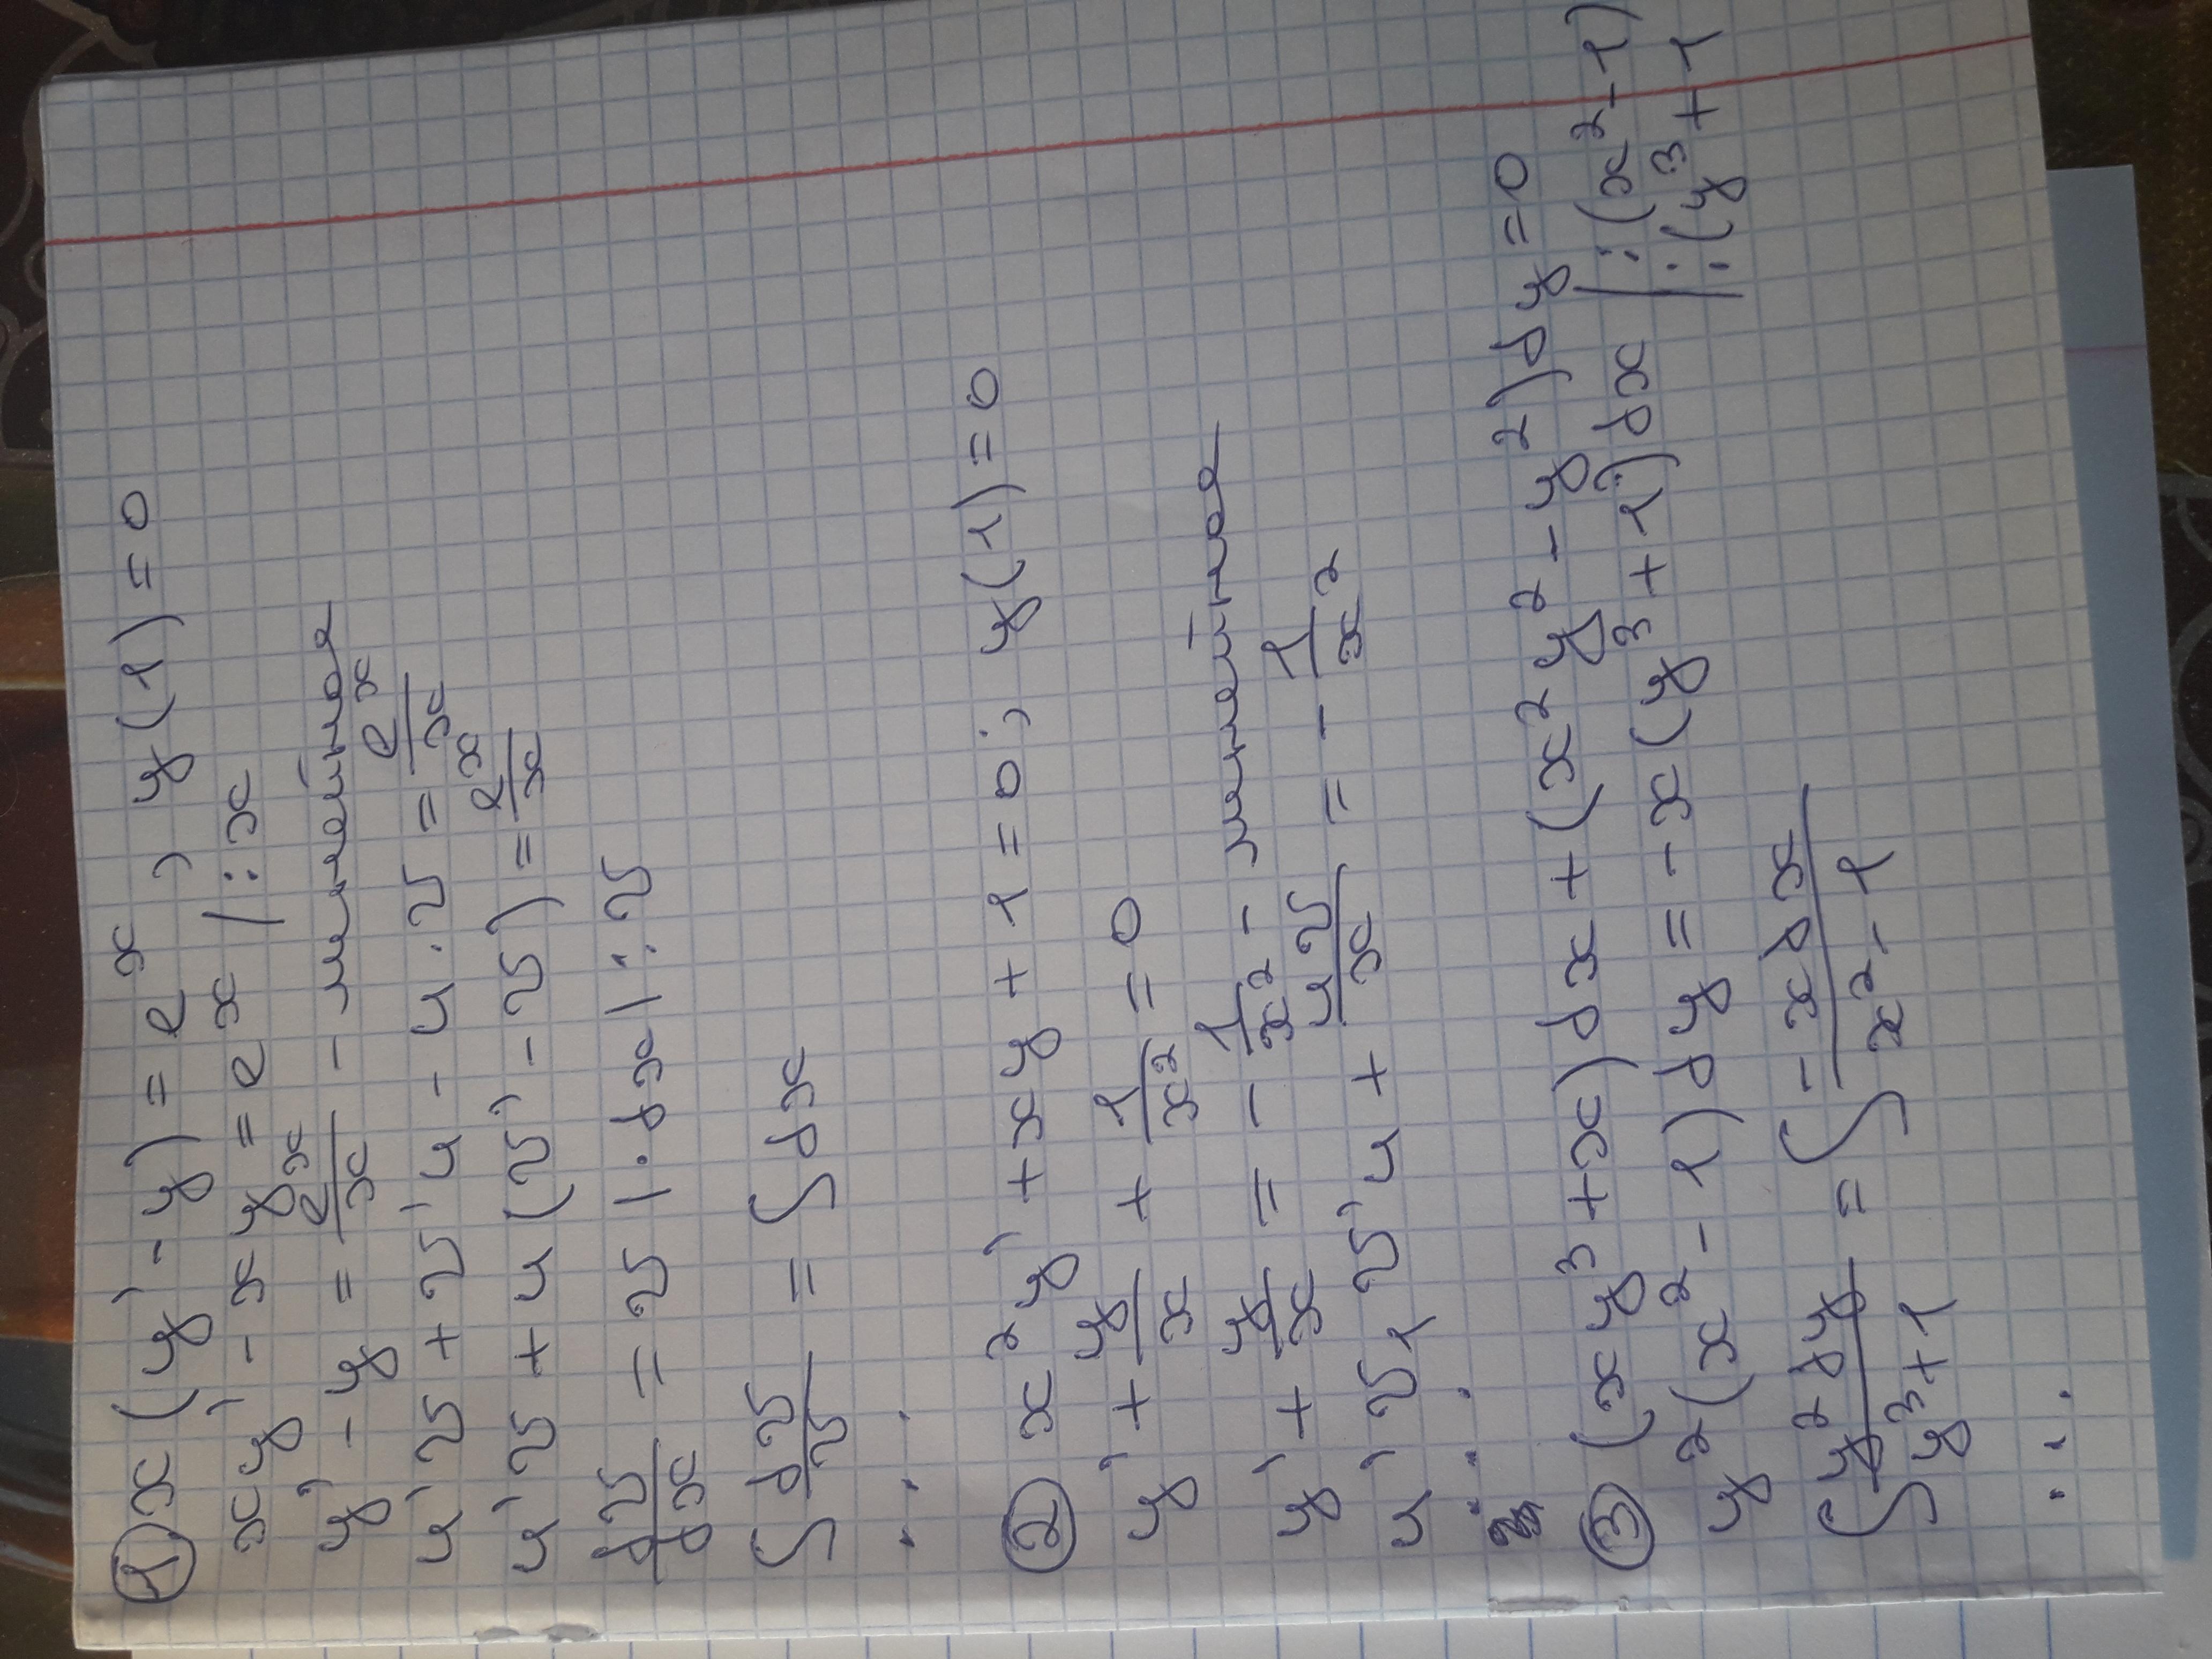 ① x(y' - y) = e^x , y(1) = 0
xy' - xy = e^x | : x
y' - y = e^x/x - линейная
u'v + v'u - u·v = e^x/x
u'v + u(v' - v) = e^x/x
dv/dx = v |·dx |:v
∫ dv/v = ∫ dx
...
② x²y' + xy + 1 = 0; y(1) = 0
y' + y/x + 1/x² = 0
y' + y/x = - 1/x² - линейная
u'v + v'u + uv/x = - 1/x²
...
③ (xy³ + x)dx + (x²y² - y²)dy = 0
y²(x² - 1)dy = -x(y³ + 1)dx | :(x² - 1) | :(y³ + 1
∫ y²dy/y³+1 = ∫ -xdx/x²-1
...